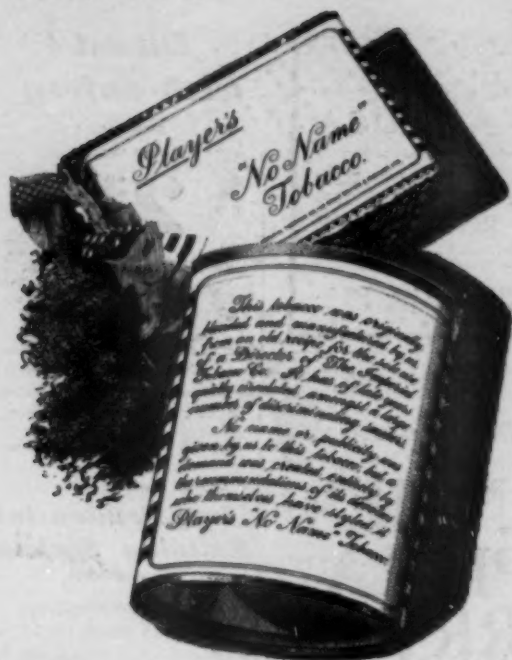 Player's
"No Name"
Tobacco.
This tobacco was originally
blended and manufactured by us
from an old recipe for the private
of a Director of The Imperial
Tobacco Co. It has of late years
quietly circulated amongst a large
number of discriminating
No name or publicity was
given by us to this tobacco, but a
demand was created quietly by
the recommendations of its
who themselves have styled it
Player's "No Name" Tobacco